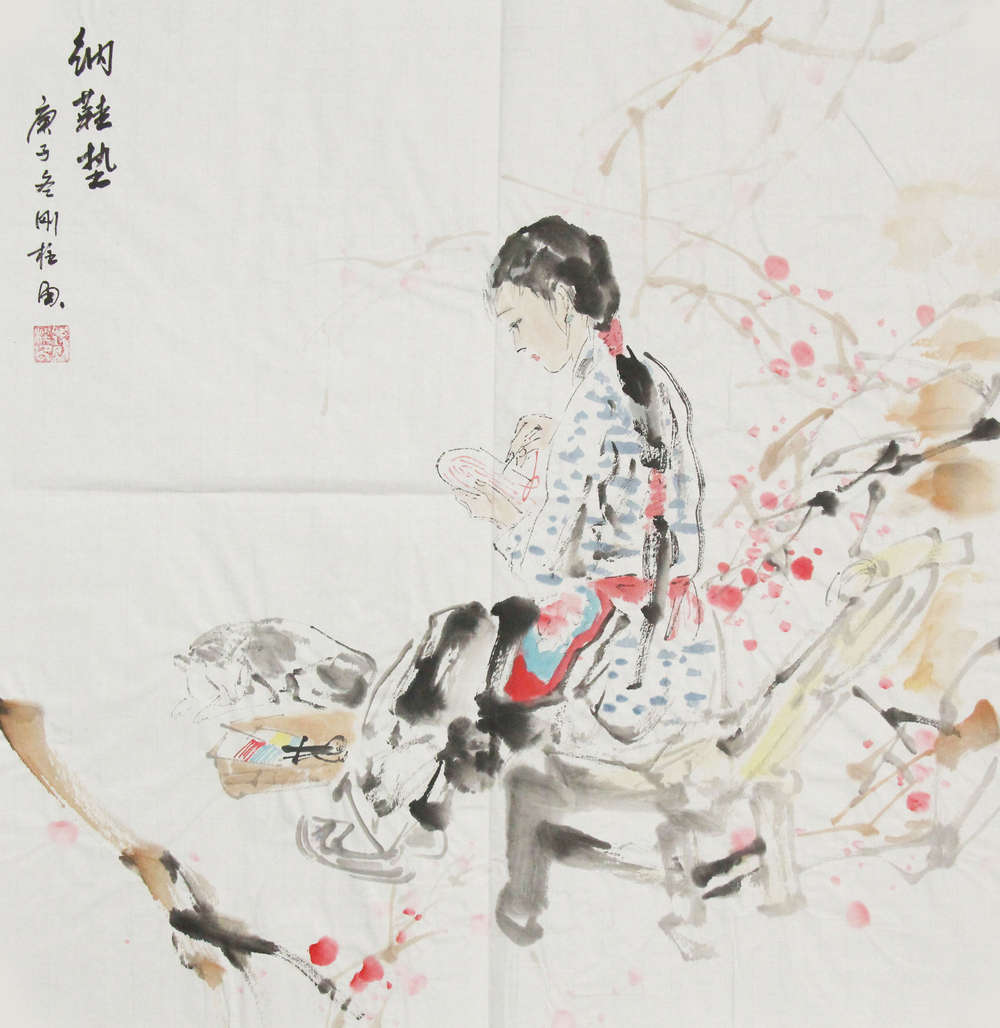 纳鞋垫
庚子冬刚柱画